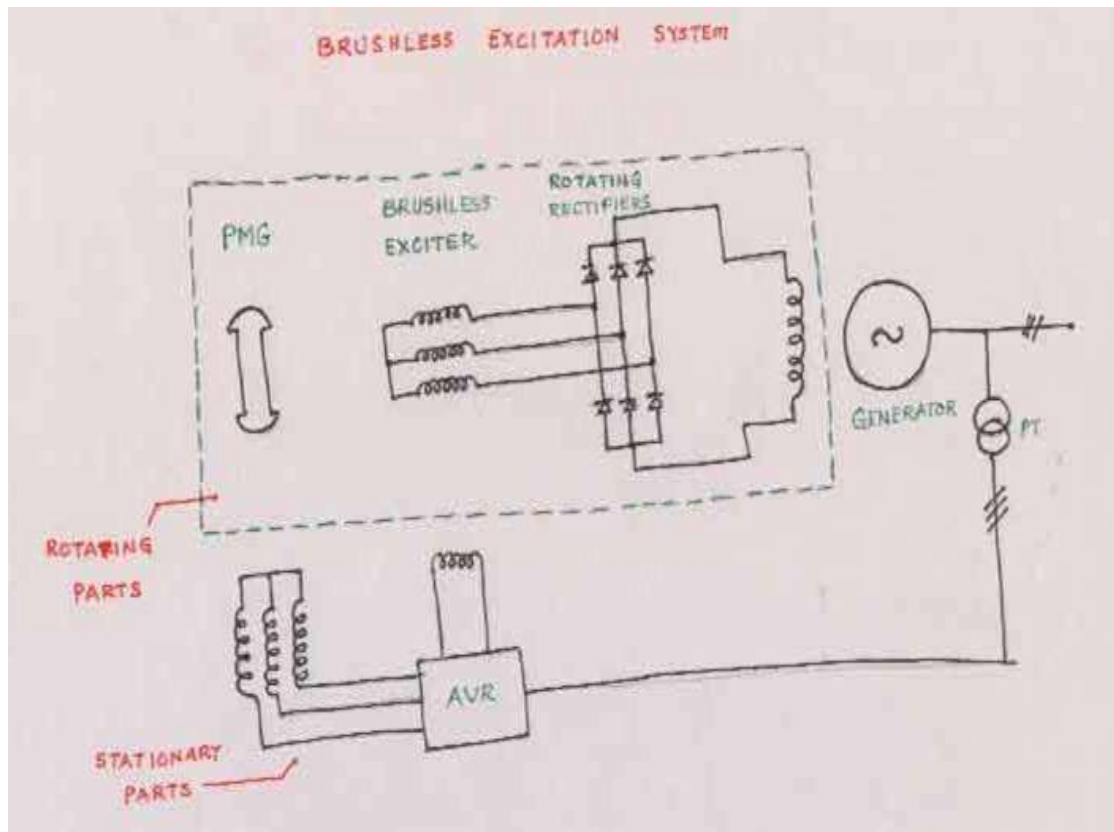 BRUSHLESS EXCITATION SYSTEM
PMG
BRUSHLESS
EXCITER
ROTATING
RECTIFIERS
GENERATOR
PT
ROTATING
PARTS
AVR
STATIONARY
PARTS